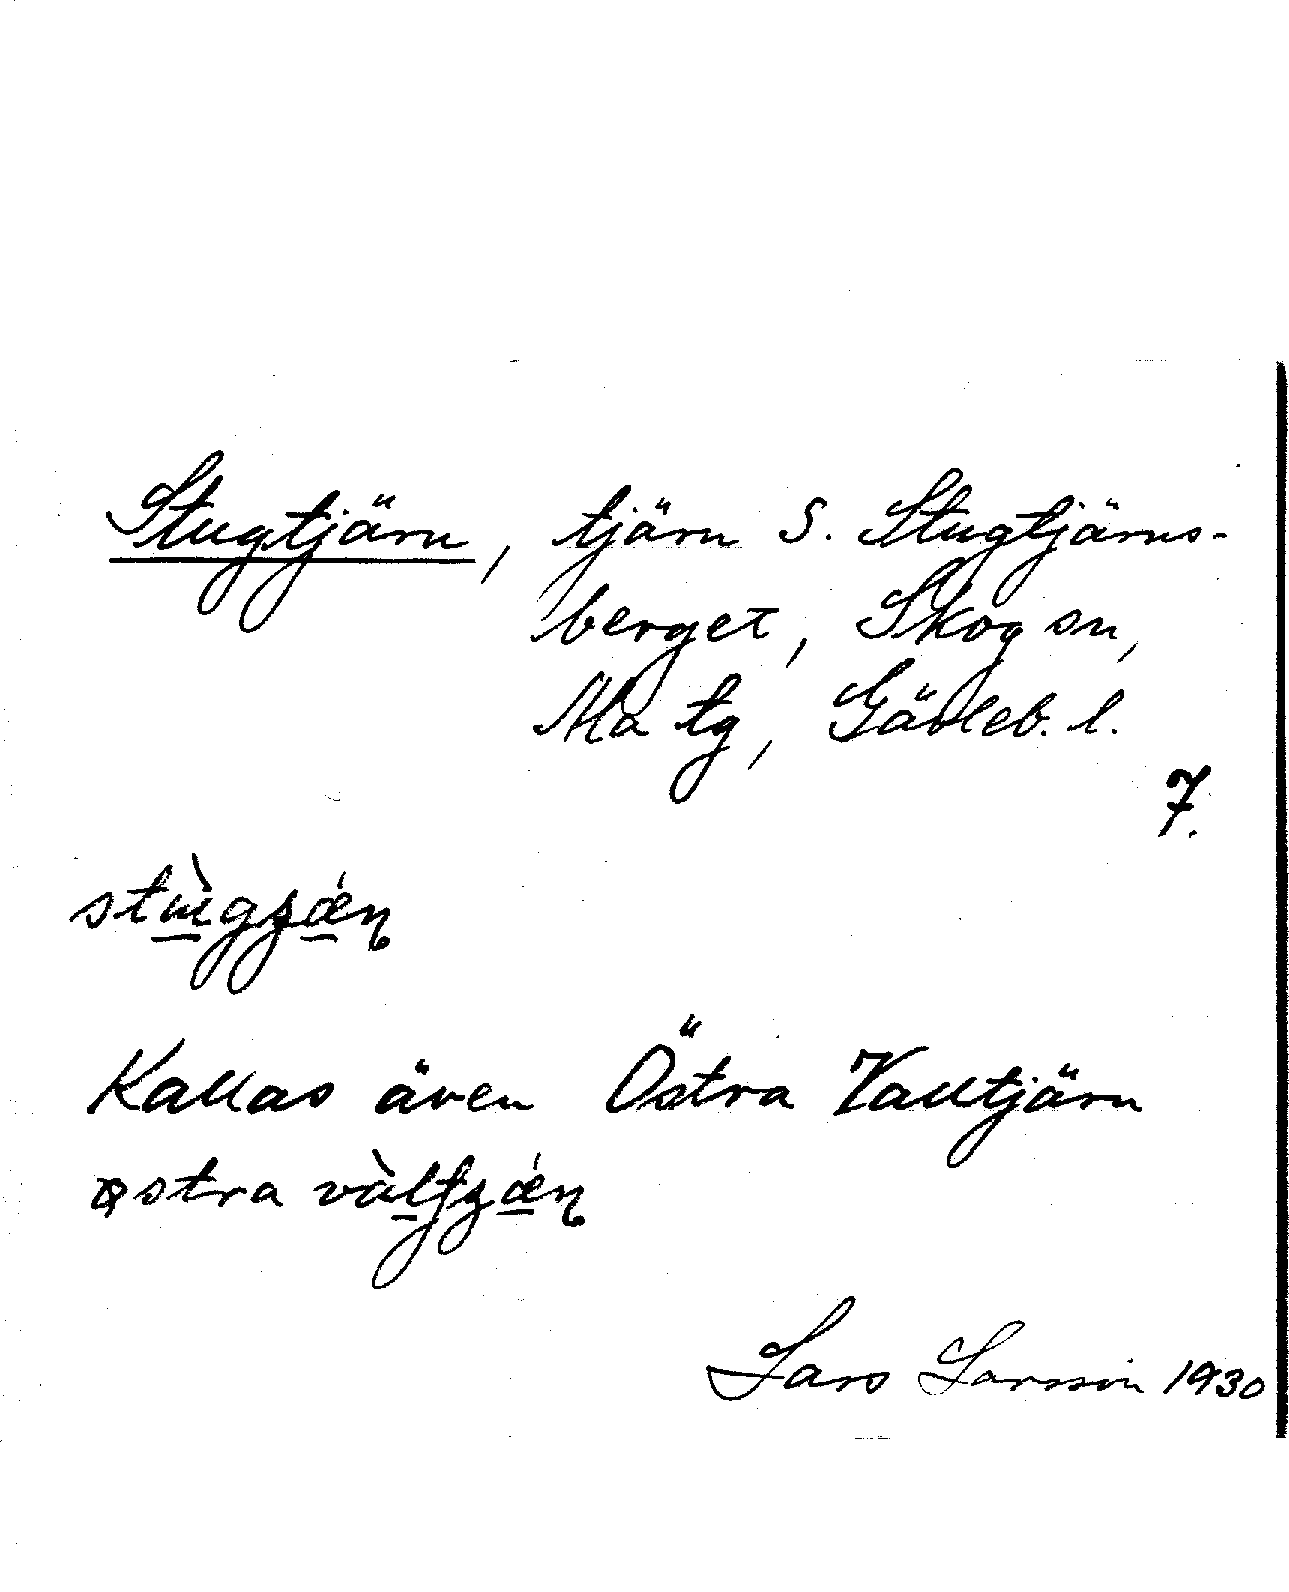 Stugtjärn, tjärn S. Stugtjärns-
berget, Skog sn,
Ala tg, Gävleb. l.
7.
Kallas även Östra Valltjärn
Lars Larsson 1930